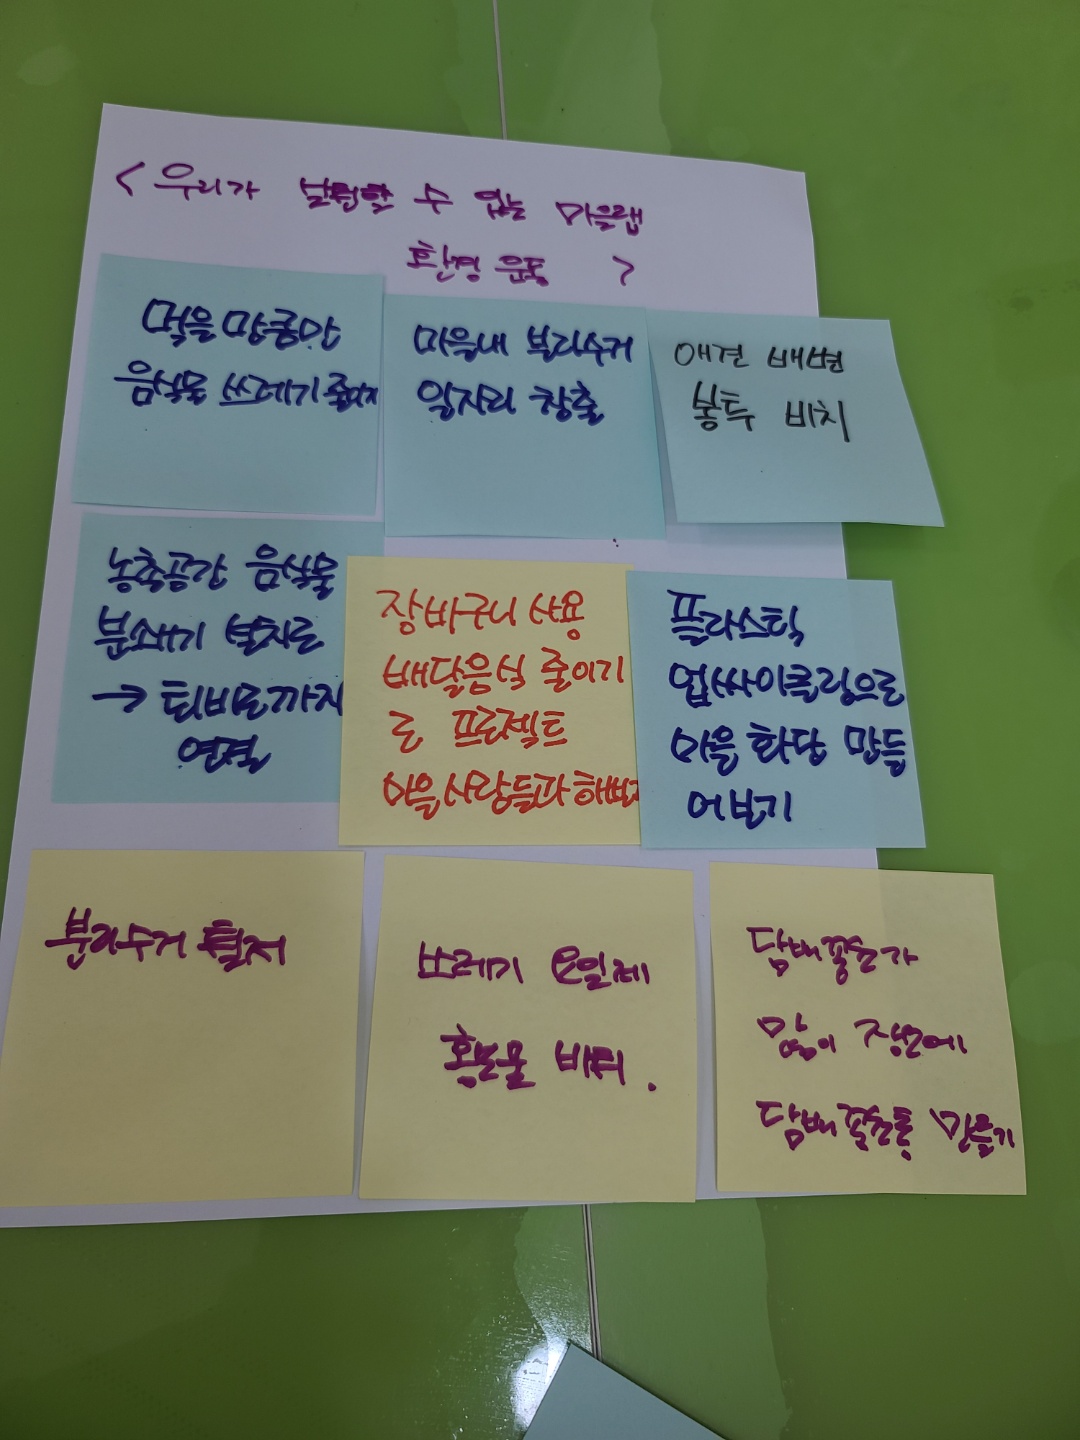 <우리가 실험할 수 있는 마을랩
환경 운동 >
먹을 만큼만
음식물 쓰레기 줄이자
마을내 분리수거
일자리 창출
애견 배변
봉투 비치
농축공간 음식물
분쇄기 설치로
→ 퇴비로까지
연결
장바구니 사용
배달음식 줄이기
로 프로젝트
마을사람들과 해보기
플라스틱
업싸이클링으로
마을 화단 만들
어보기
분리수거 철저
쓰레기 요일제
홍보물 비치.
담배꽁초가
많이 주변에
담배꽁초통 만들기